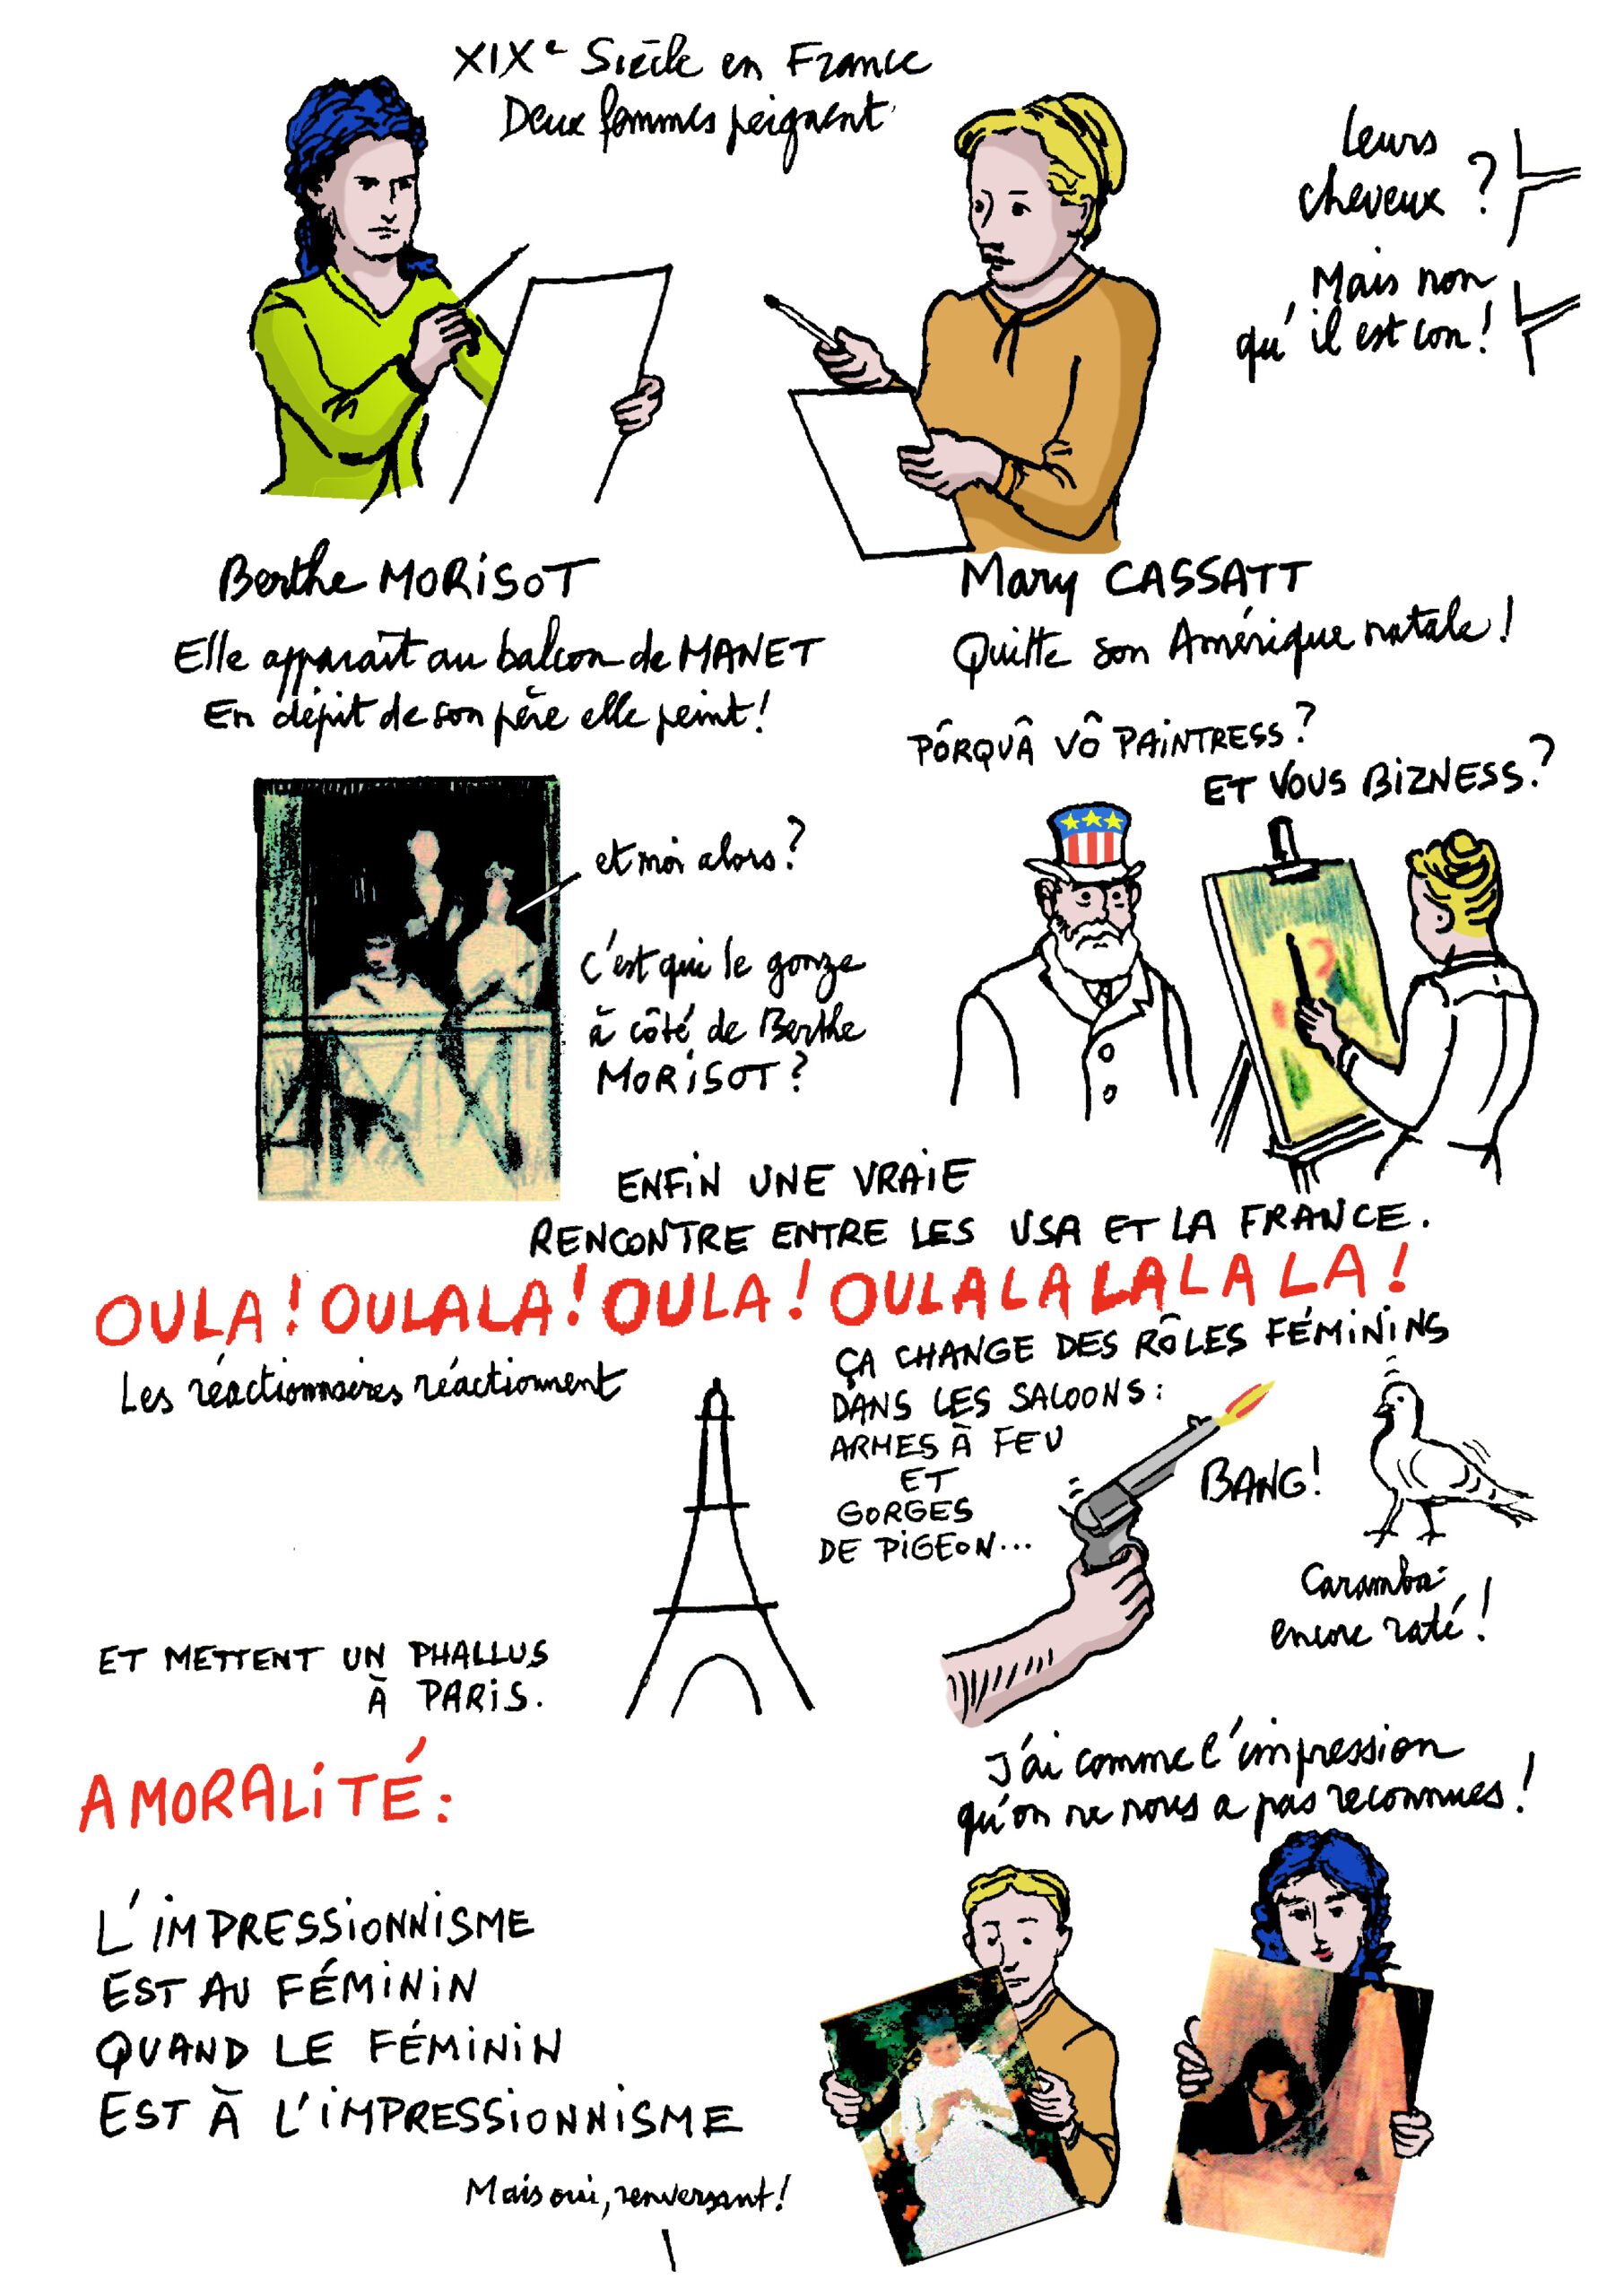 XIXe Siècle en France
Deux femmes peignent
leurs
cheveux ?
Mais non
qu'il est con !
Berthe MORiSOT
Elle apparaît au balcon de MANET
En dépit de son père elle peint !
Mary CASSATT
Quitte son Amérique natale !
PÔRQUÂ VÔ PAiNTRESS ?
ET VOUS BiZNESS ?
et moi alors ?
C'est qui le gonze
à côté de Berthe
MORiSOT ?
ENFiN UNE VRAiE
RENCONTRE ENTRE LES USA ET LA FRANCE.
OULA ! OULALA ! OULA ! OULALALALALALA !
Les réactionnaires réactionnent
ET METTENT UN PHALLUS
À PARiS.
ÇA CHANGE DES RÔLES FÉMiNiNS
DANS LES SALOONS :
ARMES À FEU
ET
GORGES
DE PiGEON...
BANG !
Caramba
encore raté !
AMORALiTÉ :
L'iMPRESSiONNiSME
EST AU FÉMiNiN
QUAND LE FÉMiNiN
EST À L'iMPRESSiONNiSME
Mais oui, renversant !
J'ai comme l'impression
qu'on ne nous a pas reconnues !